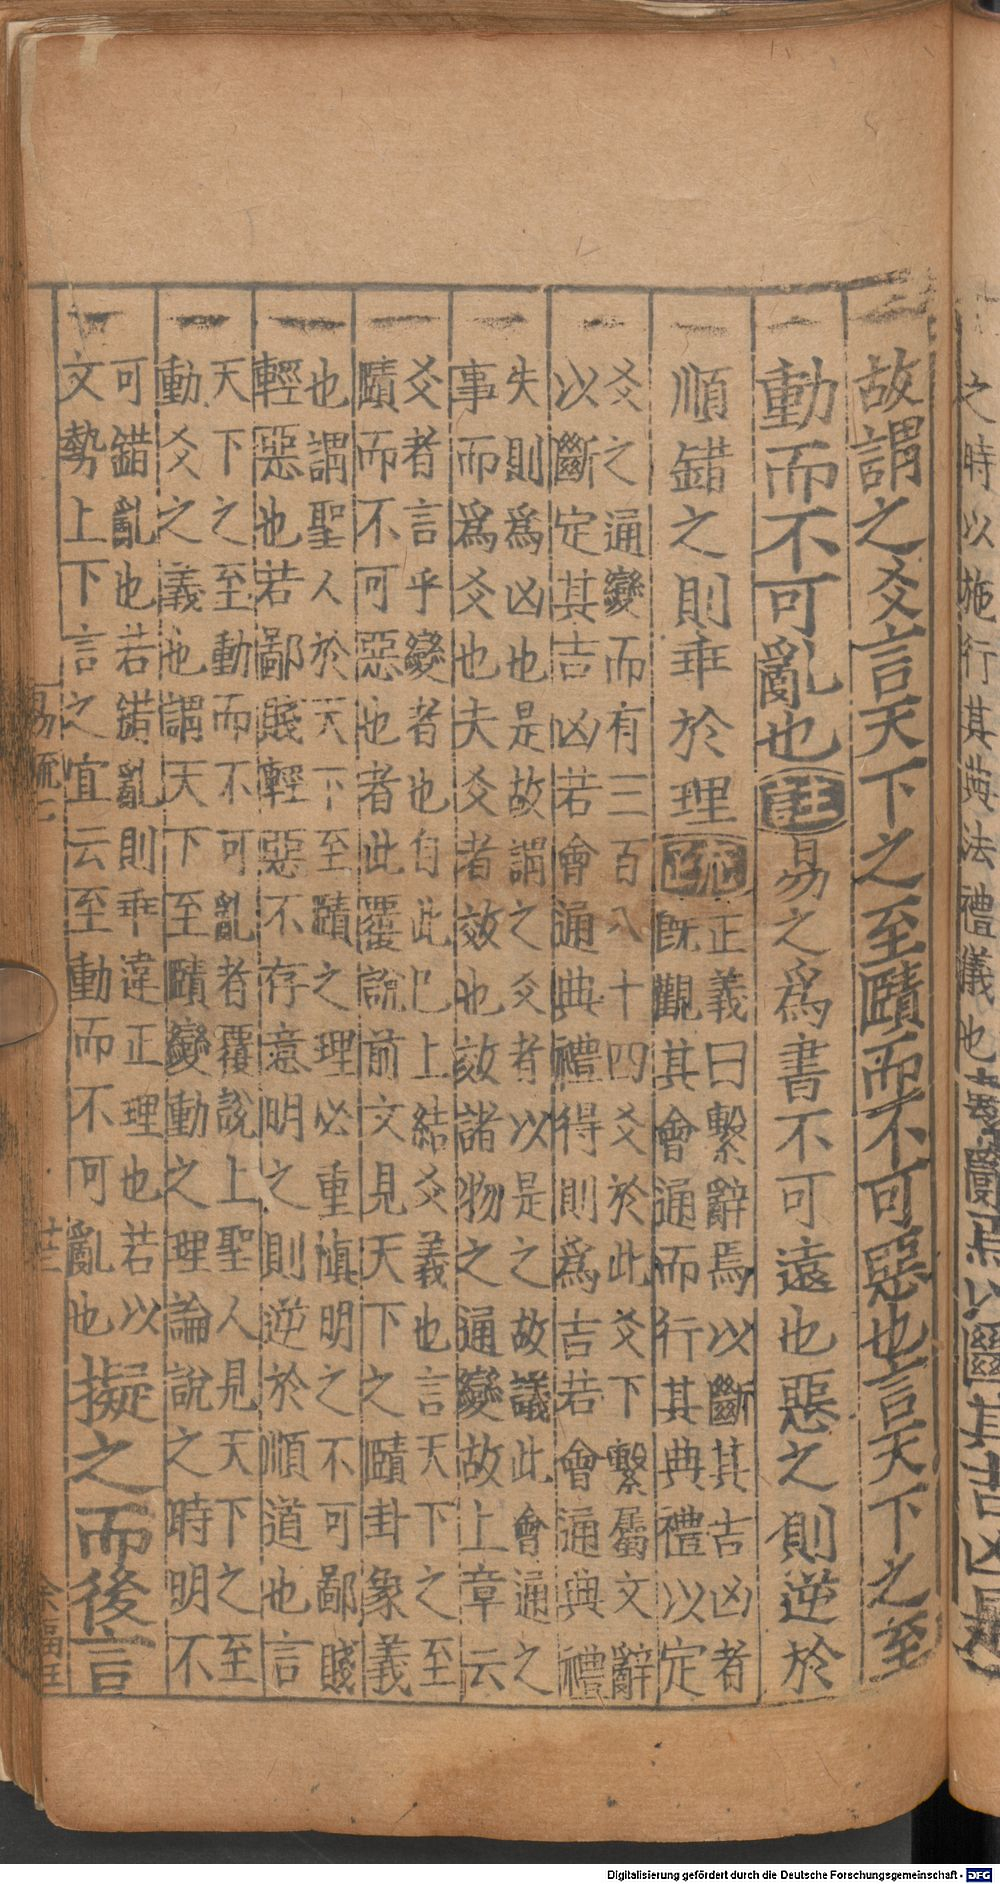 之時以施行其典法禮儀也
故謂之爻言天下之至賾而不可惡也言天下之至
動而不可亂也註易之爲書不可遠也惡之則逆於
順錯之則乖於理疏
正義曰繫辭焉以斷其吉凶者
既觀其會通而行其典禮以定
爻之通變而有三百八十四爻於此爻下繫屬文辭
以斷定其吉凶若會通典禮得則爲吉若會通典禮
失則爲凶也是故謂之爻者以是之故議此會通之
事而爲爻也夫爻者效也效諸物之通變故上章云
爻者言乎變者也自此已上結爻義也言天下之至
賾而不可惡也者此覆說前文見天下之賾卦象義
也謂聖人於天下至賾之理必重慎明之不可鄙賤
輕惡也若鄙賤輕惡不存意明之則逆於順道也言
天下之至動而不可亂者覆說上聖人見天下之至
動爻之義也謂天下至賾變動之理論說之時明不
可錯亂也若錯亂則乖違正理也若以
文勢上下言之宜云至動而不可亂也
擬之而後言
易疏
Digitalisierung gefördert durch die Deutsche Forschungsgemeinschaft - DFG